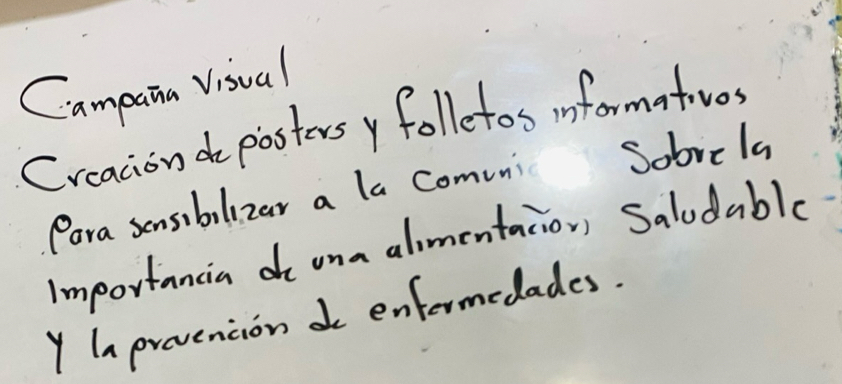 Campaña Visual
Creación de pósters y folletos informativos
Para sensibilizar a la Sobre la
Importancia de una alimentación Saludable
Y la prevención de enfermedades.